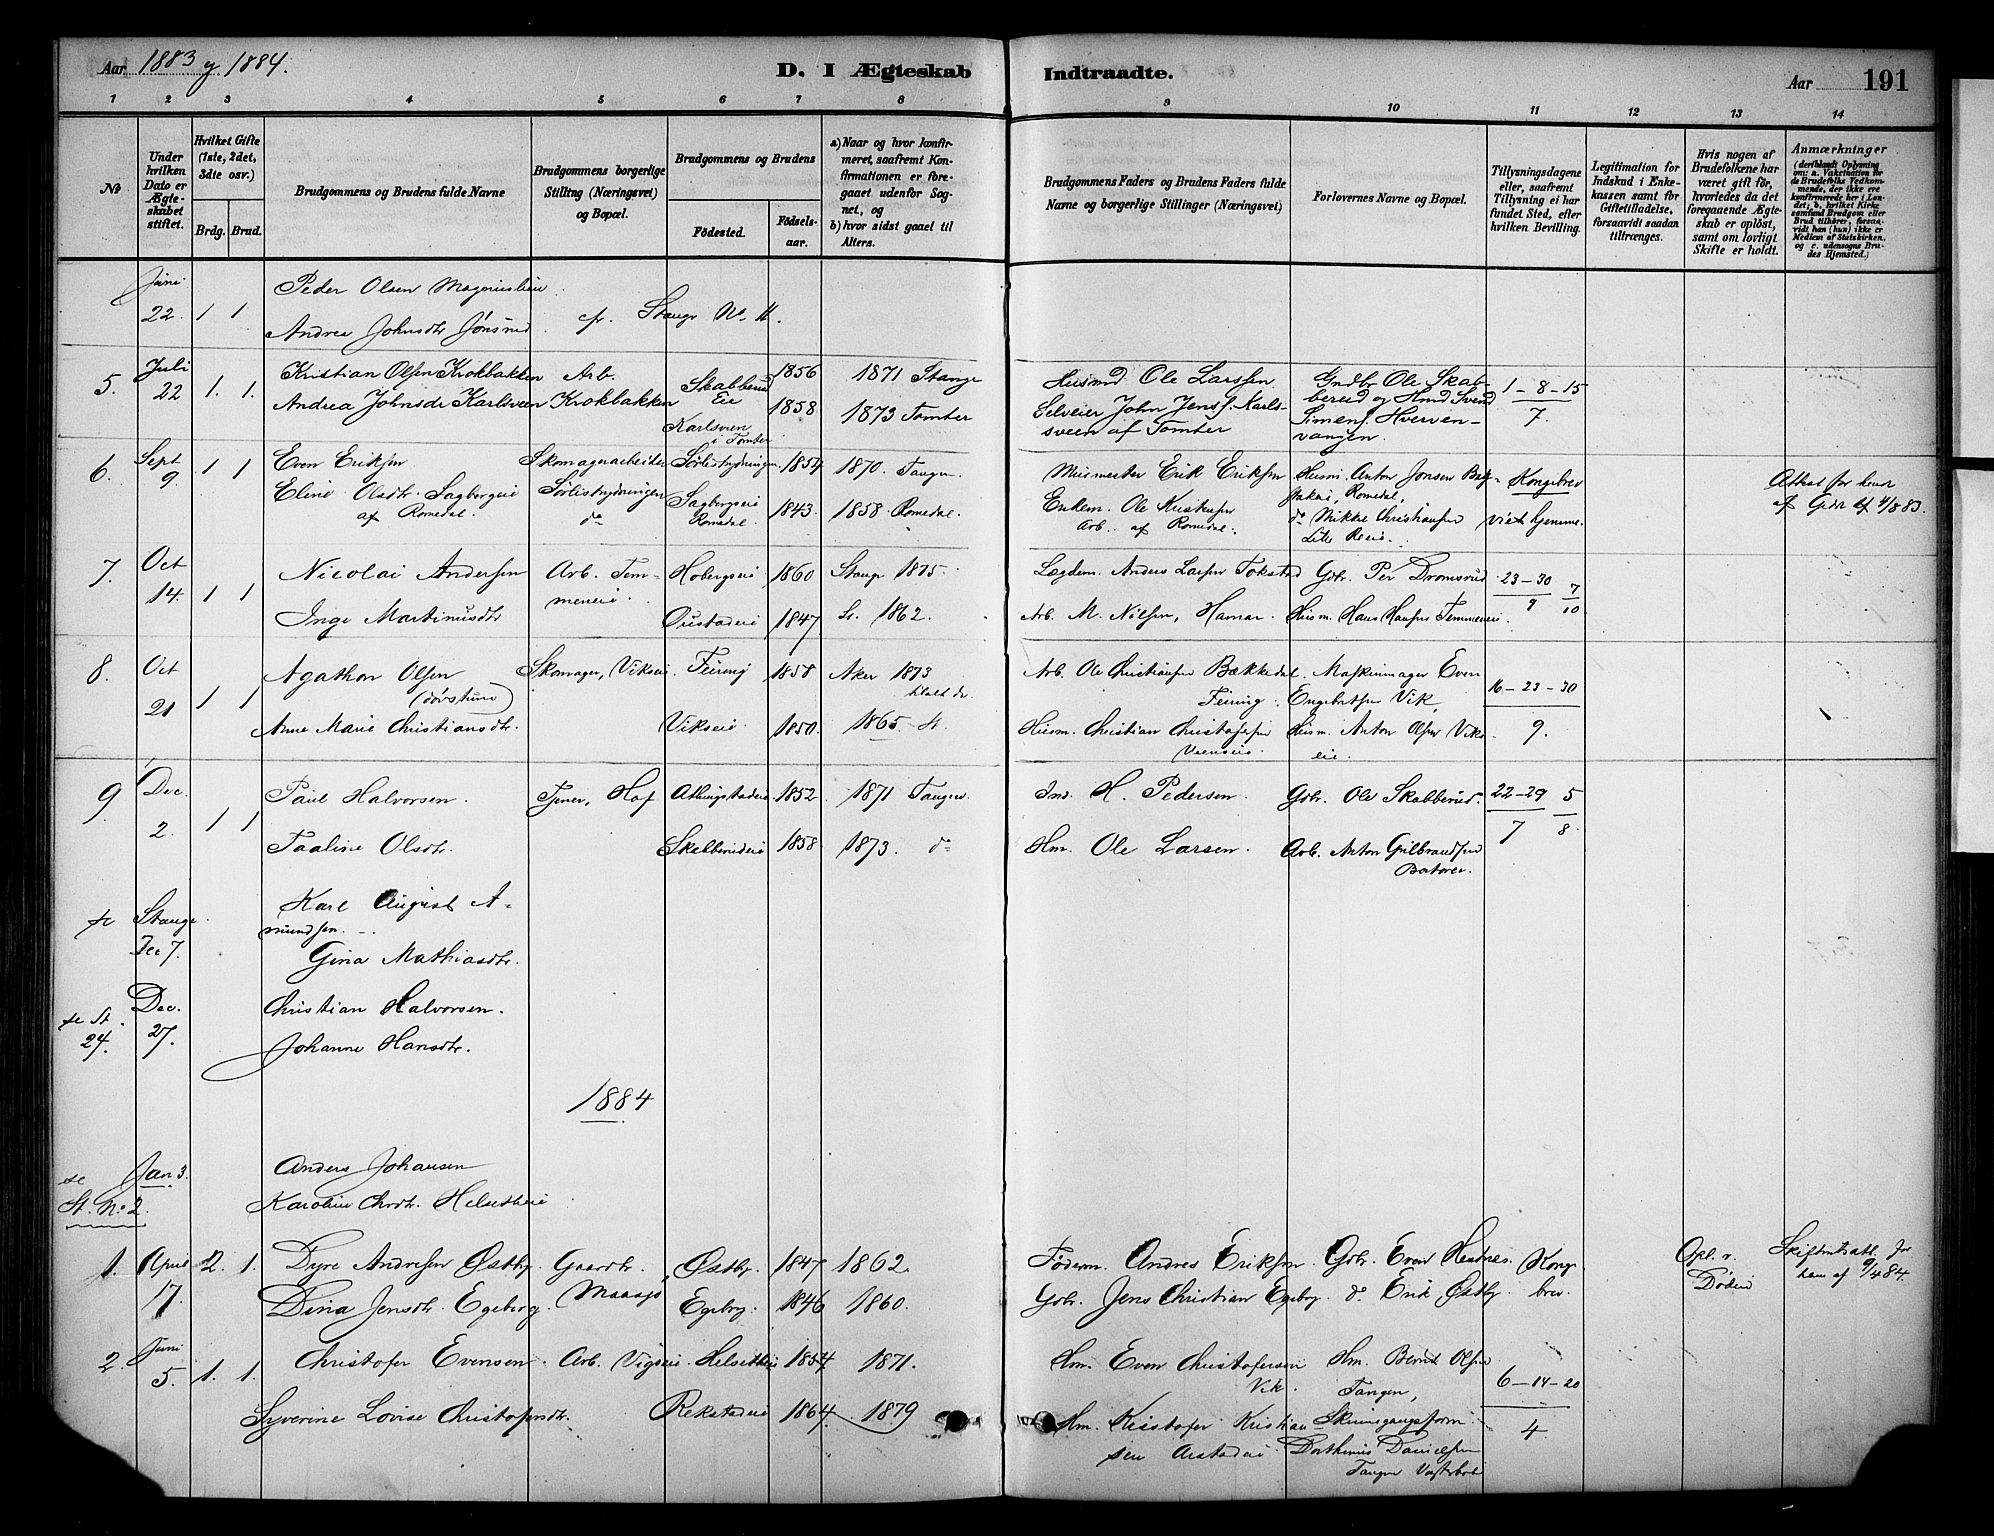 Aar 1883 og 1884.
D. I Ægteskab Indtraadte.
Aar 191
1 2 3 4 5 6 7 8 9 10 11 12 13 14
No
Under hvilken Dato er Ægteskabet stiftet.
Hvilket Gifte (1ste, 2det, 3die osv.)
Brdg. Brud.
Brudgommens og Brudens fulde Navne
Brudgommens borgerlige Stilling (Næringsvei) og Bopæl.
Brudgommens og Brudens
Födested. Födselsaar.
a) Naar og hvor konfirmeret, saafremt Konfirmationen er foregaaet udenfor Sognet, og
b) hvor sidst gaaet til Alters.
Brudgommens Faders og Brudens Faders fulde Navne og borgerlige Stillinger (Næringsvei)
Forlovernes Navne og Bopæl.
Tillysningsdagene eller, saafremt Tillysning ei har fundet Sted, efter hvilken Bevilling.
Legitimation for Indskud i Enkekassen samt for Giftetilladelse, forsaavidt saadan tiltrænges.
Hvis nogen af Brudefolkene har været gift før, hvorledes da det foregaaende Ægteskab er oplöst, samt om lovligt Skifte er holdt.
Anmærkninger
(deriblandt Oplysning om: a. Vakcination for de Brudefolks Vedkommende, der ikke ere konfirmerede her i Landet; b. hvilket Kirkesamfund Brudgom eller Brud tilhører, forsaavidt han (hun) ikke er Medlem af Statskirken, og c. udensogns Brudes Hjemsted.)
Juni 22. 1 1 Peder Olsen
Andrea Johnsdtr Jønsrud cfr. Stange No. 11.
5. Juli 22 1. 1. Kristian Olsen Krokbakken Arb. Skabberud Eie 1856 1871 Stange Husmd Ole Larssen Gndbr Ole Skabberud og Hmd Svend 1-8-15
Andrea Johnsdr Karlsveen Krokbakken Karlsveen i Tomter 1858 1873 Tomter Selveier John Jensf. Karlssveen af Tomter Simens. Hvervenvangen. 7.
6. Sept 9 1 1 Even Eriksen Skomagerarbeider 1854 1870 Tangen Murmester Erik Eriksen Husm. Anton Jonsen Romedal, Kongebrev
Eline Olsdtr. Sagbergeie af Romedal. do Sagbergseie Romedal. 1843. 1858 Romedal. Arb. af Romedal. do Mikkel Christiansen viet hjemme.
Attest for hend af
7. Oct 14. 1 1 Nicolai Andersen Arb. Temmeneie Hobergseie 1860 Stange 1875. Lægdem. Anders Larsen Tokstad Gbr. Per Dromsrud 23-30 9 7 10
Inge Martinusdtr 1847 St. 1862. Arb. M. Nilsen, Hamar. Husm. Hans Hansen Temmeneie.
8. Oct 21 1 1 Agathon Olsen Skomager, Vikseie Feiring 1858 Aker 1873 Arb. Ole Christiansen Bækkedal Feiring. Maskinmager Even Engebretsen Vik, 16-23-30
Anne Marie Christiansdtr. Vikseie 1850. 1865 St. Husm. Christian Christofersen Husm. Anton Olsen Vikseie. 9.
9 Dec. 2. 1 1 Paul Halvorsen. Tjener, Hof 1852. 1871 Tangen. Ind. H. Pedersen. Gbr. Ole Skabberud. 22-29 7 5 8.
Taaline Olsdtr. Skabberudeie 1858. 1873. do Hm. Ole Larsen. Arb. Anton Gulbrandsen
Stange Dec 7. Karl August Amundsen.
Gina Mathiasdtr.
St. 24. Dec. 27. Christian Halvorsen.
Johanne Hansdtr.
1884
St. No 2. Jan 3. Anders Johansen
Karoline Chrdtr. Helsetheie
1. April 17. 2. 1. Dyre Andresen Østby Gaardbr. Maasjø Østby. 1847 1862. Føderm. Andres Eriksen Gbr. Even Kongebrev. Opl. v. Døden Skifteattest for ham af 9/4 84.
Dina Jensdtr. Egeberg. Egeberg. 1846 1860. Gbr. Jens Christian Egeberg. do Erik Østby.
2. Juni 5. 1. 1. Christofer Evensen Arb. Vigseie Helsetheie 1854 1871. Hm. Even Christofersen Vik. Hm. Bernt Olsen Tangen, 6-14-20
Syverine Lovise Christofersdtr. Rekstadeie 1864 1879 Hm. Kristofer Kristiansen Skinnegangsform. Tangen 4.